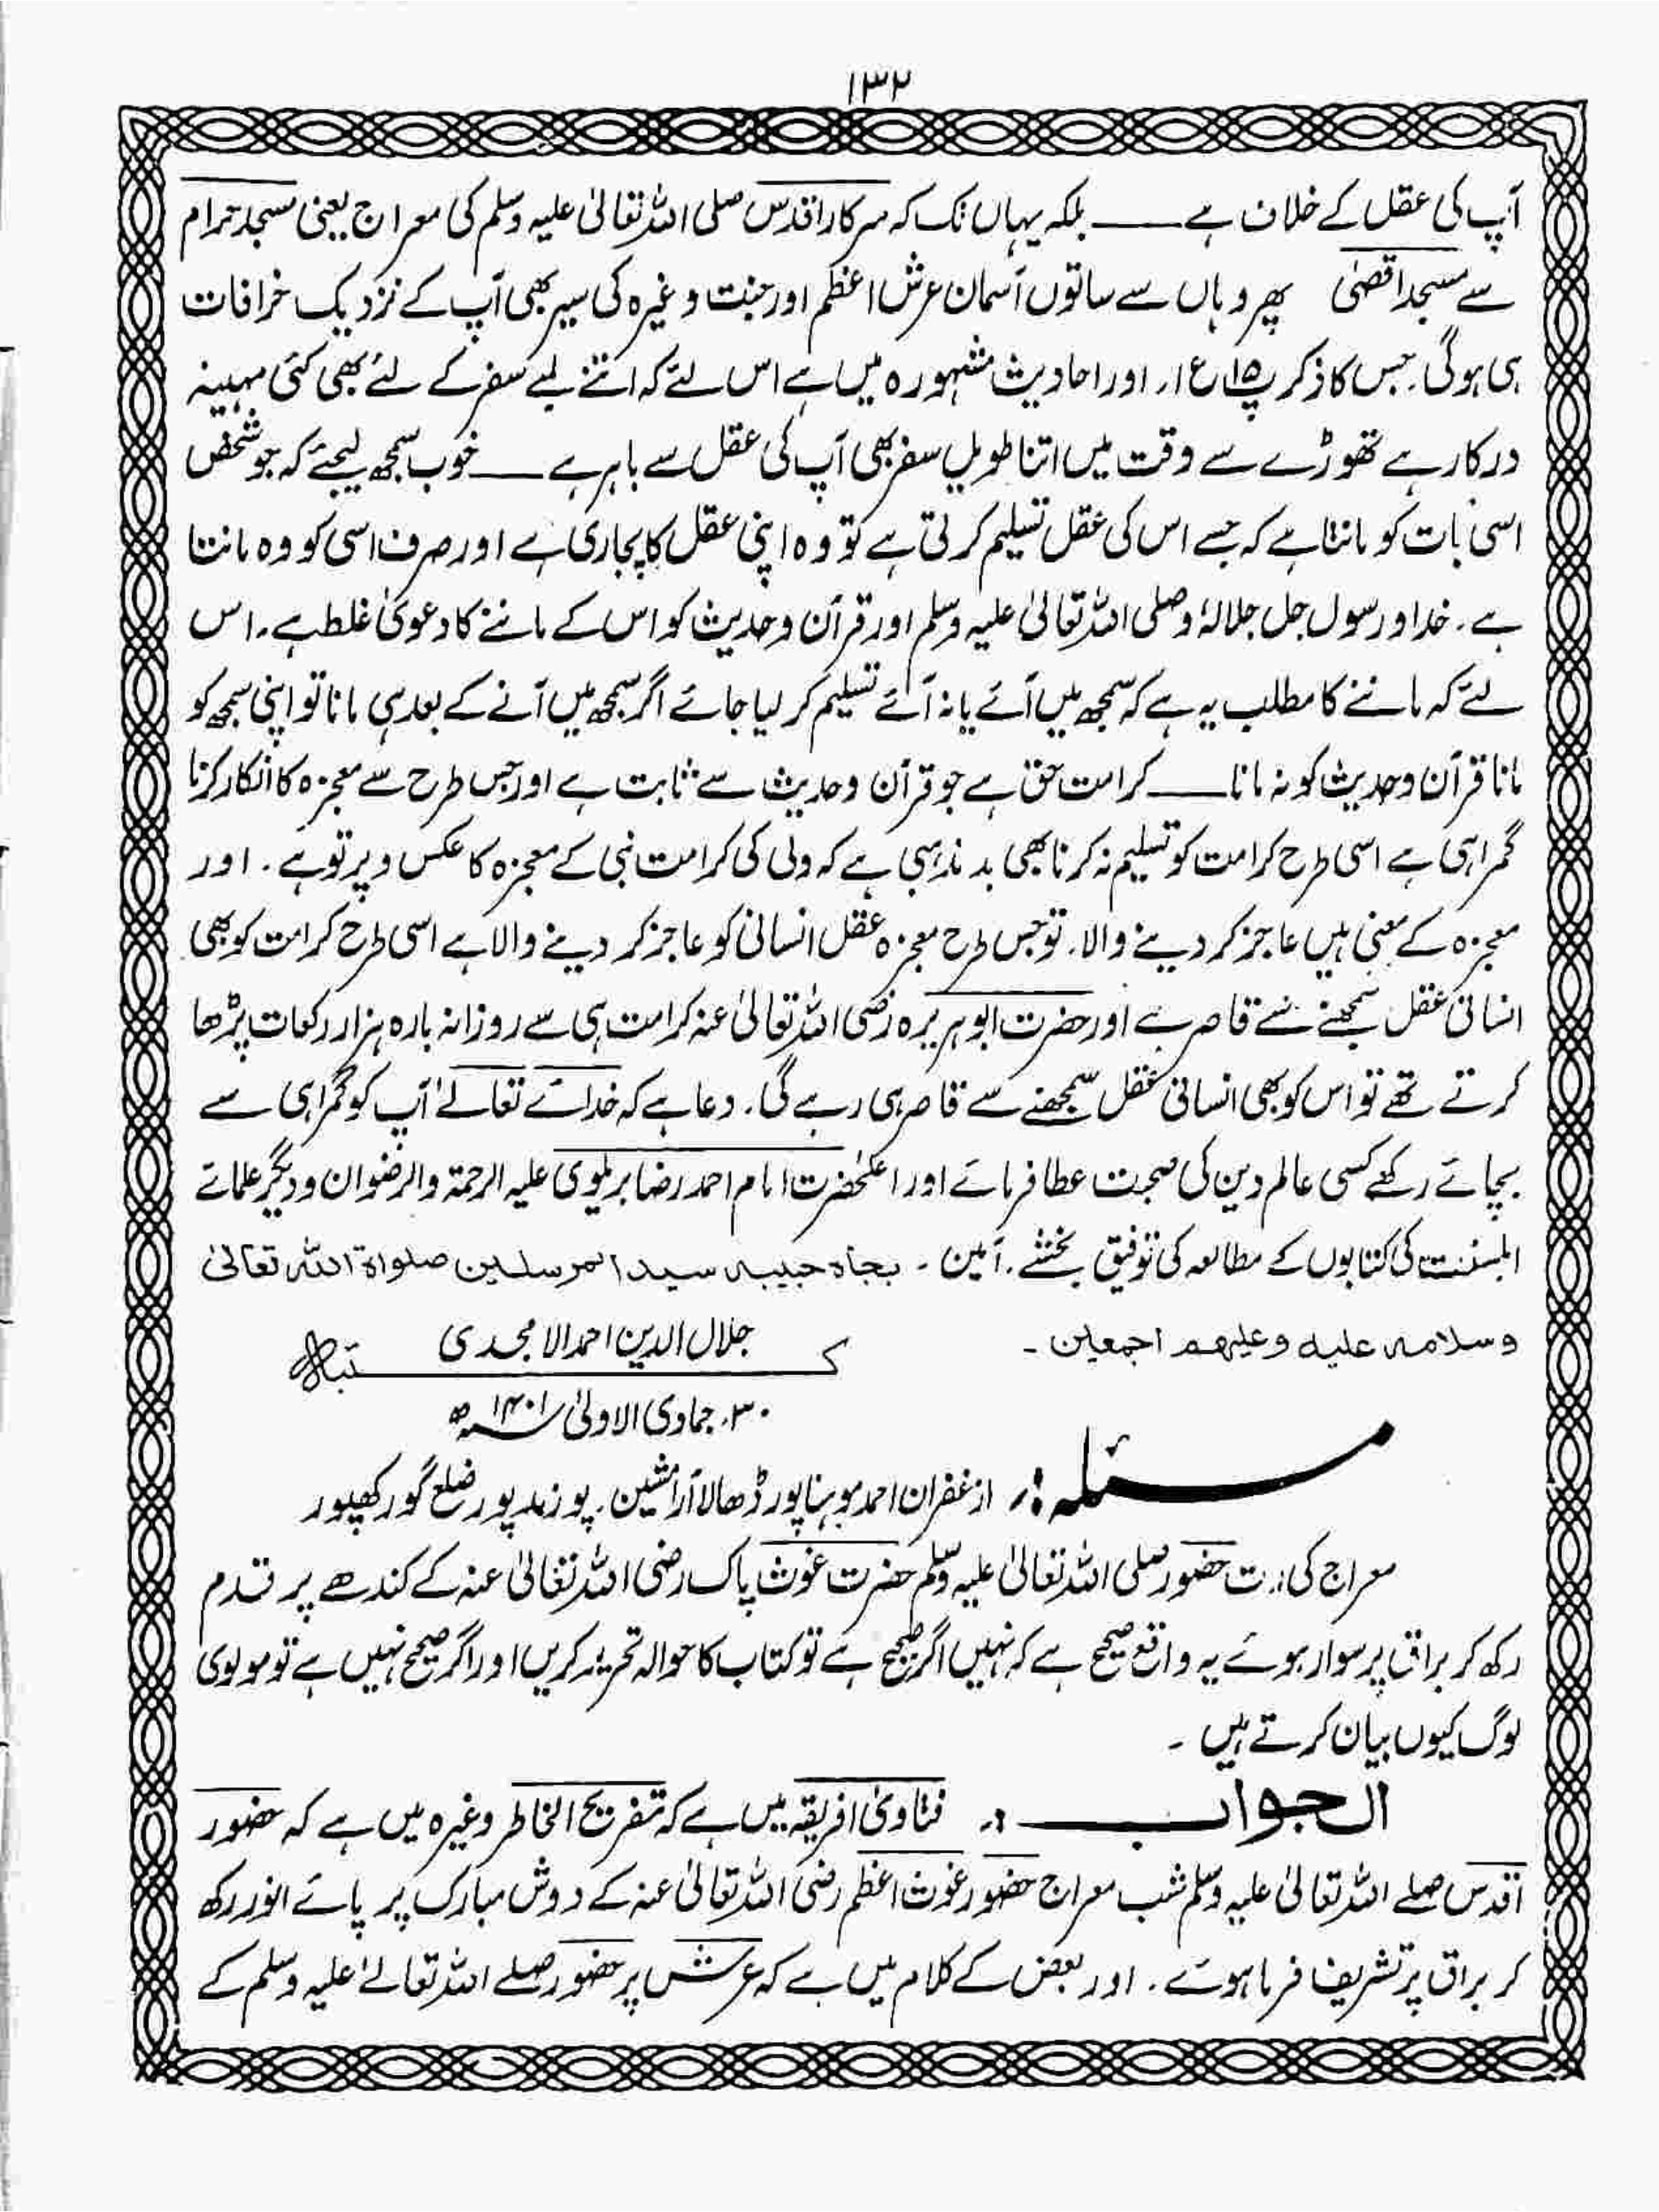 ۱۳۲
آپ کی عقل کے خلاف ہے ــــــ بلکہ یہاں تک کہ سرکار اقدس صلی اللہ تعالیٰ علیہ وسلم کی معراج یعنی مسجد حرام
سے مسجد اقصیٰ پھر وہاں سے ساتوں آسمان عرش اعظم اور جنت وغیرہ کی سیر بھی آپ کے نزدیک خرافات
ہی ہوگی۔ جس کا ذکر پ۱۵ ع۱۔ اور احادیث مشہورہ میں ہے اس لئے کہ اتنے لمبے سفر کے لئے بھی کئی مہینہ
درکار ہے تھوڑے سے وقت میں اتنا طویل سفر بھی آپ کی عقل سے باہر ہے ــــــ خوب سمجھ لیجئے کہ جو شخص
اسی بات کو مانتا ہے کہ جسے اس کی عقل تسلیم کرتی ہے تو وہ اپنی عقل کا پجاری ہے اور صرف اسی کو وہ مانتا
ہے۔ خدا و رسول جل جلالہٗ وصلی اللہ تعالیٰ علیہ وسلم اور قرآن وحدیث کو اس کے ماننے کا دعویٰ غلط ہے۔ اس
لئے کہ ماننے کا مطلب یہ ہے کہ سمجھ میں آئے یا نہ آئے تسلیم کر لیا جائے اگر سمجھ میں آنے کے بعد ہی مانا تو اپنی سمجھ کو
مانا قرآن وحدیث کو نہ مانا ــــــ کرامت حق ہے جو قرآن وحدیث سے ثابت ہے اور جس طرح سے معجزہ کا انکار کرنا
گمراہی ہے اسی طرح کرامت کو تسلیم نہ کرنا بھی بد مذہبی ہے کہ ولی کی کرامت نبی کے معجزہ کا عکس و پرتو ہے۔ اور
معجزہ کے معنی ہیں عاجز کر دینے والا۔ تو جس طرح معجزہ عقل انسانی کو عاجز کر دینے والا ہے اسی طرح کرامت کو بھی
انسانی عقل سمجھنے سے قاصر ہے اور حضرت ابو ہریرہ رضی اللہ تعالیٰ عنہ کرامت ہی سے روزانہ بارہ ہزار رکعات پڑھا
کرتے تھے تو اس کو بھی انسانی عقل سمجھنے سے قاصر ہی رہے گی۔ دعا ہے کہ خدائے تعالےٰ آپ کو گمراہی سے
بچائے رکھے کسی عالم دین کی صحبت عطا فرمائے اور اعلٰحضرت امام احمد رضا بریلوی علیہ الرحمۃ والرضوان ودیگر علمائے
اہلسنت کی کتابوں کے مطالعہ کی توفیق بخشے۔ آمین۔ بجاہ حبیبہ سید المرسلین صلواۃ اللہ تعالیٰ
وسلامہ علیہ وعلیھم اجمعین۔
کتبہ جلال الدین احمد الامجدی
۳۰۔ جمادی الاولیٰ ۱۴۰۱ھ
مسئلہ :۔ از غفران احمد موہناپور ڈھالا آرامشین۔ پوزیدپور ضلع گورکھپور
معراج کی رت حضور صلی اللہ تعالیٰ علیہ وسلم حضرت غوث پاک رضی اللہ تعالیٰ عنہ کے کندھے پر قدم
رکھ کر براق پر سوار ہوئے یہ واقع صحیح ہے کہ نہیں اگر صحیح ہے تو کتاب کا حوالہ تحریر کریں اور اگر صحیح نہیں ہے تو مولوی
لوگ کیوں بیان کرتے ہیں۔
الجواب :۔ فتاویٰ افریقہ میں ہے کہ تفریح الخاطر وغیرہ میں ہے کہ حضور
اقدس صلے اللہ تعالیٰ علیہ وسلم شب معراج حضور غوث اعظم رضی اللہ تعالیٰ عنہ کے دوش مبارک پر پائے انور رکھ
کر براق پر تشریف فرما ہوئے۔ اور بعض کے کلام میں ہے کہ عرش پر حضور صلے اللہ تعالےٰ علیہ وسلم کے